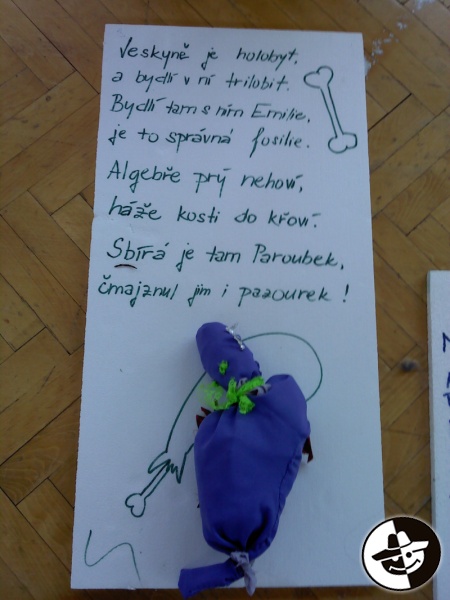 Veskyně je holobyt,
a bydlí v ní trilobit.
Bydlí tam s ním Emilie,
je to správná fosilie.
Algebře prý nehoví,
háže kosti do křoví.
Sbírá je tam Paroubek,
čmajznul jim i pazourek !